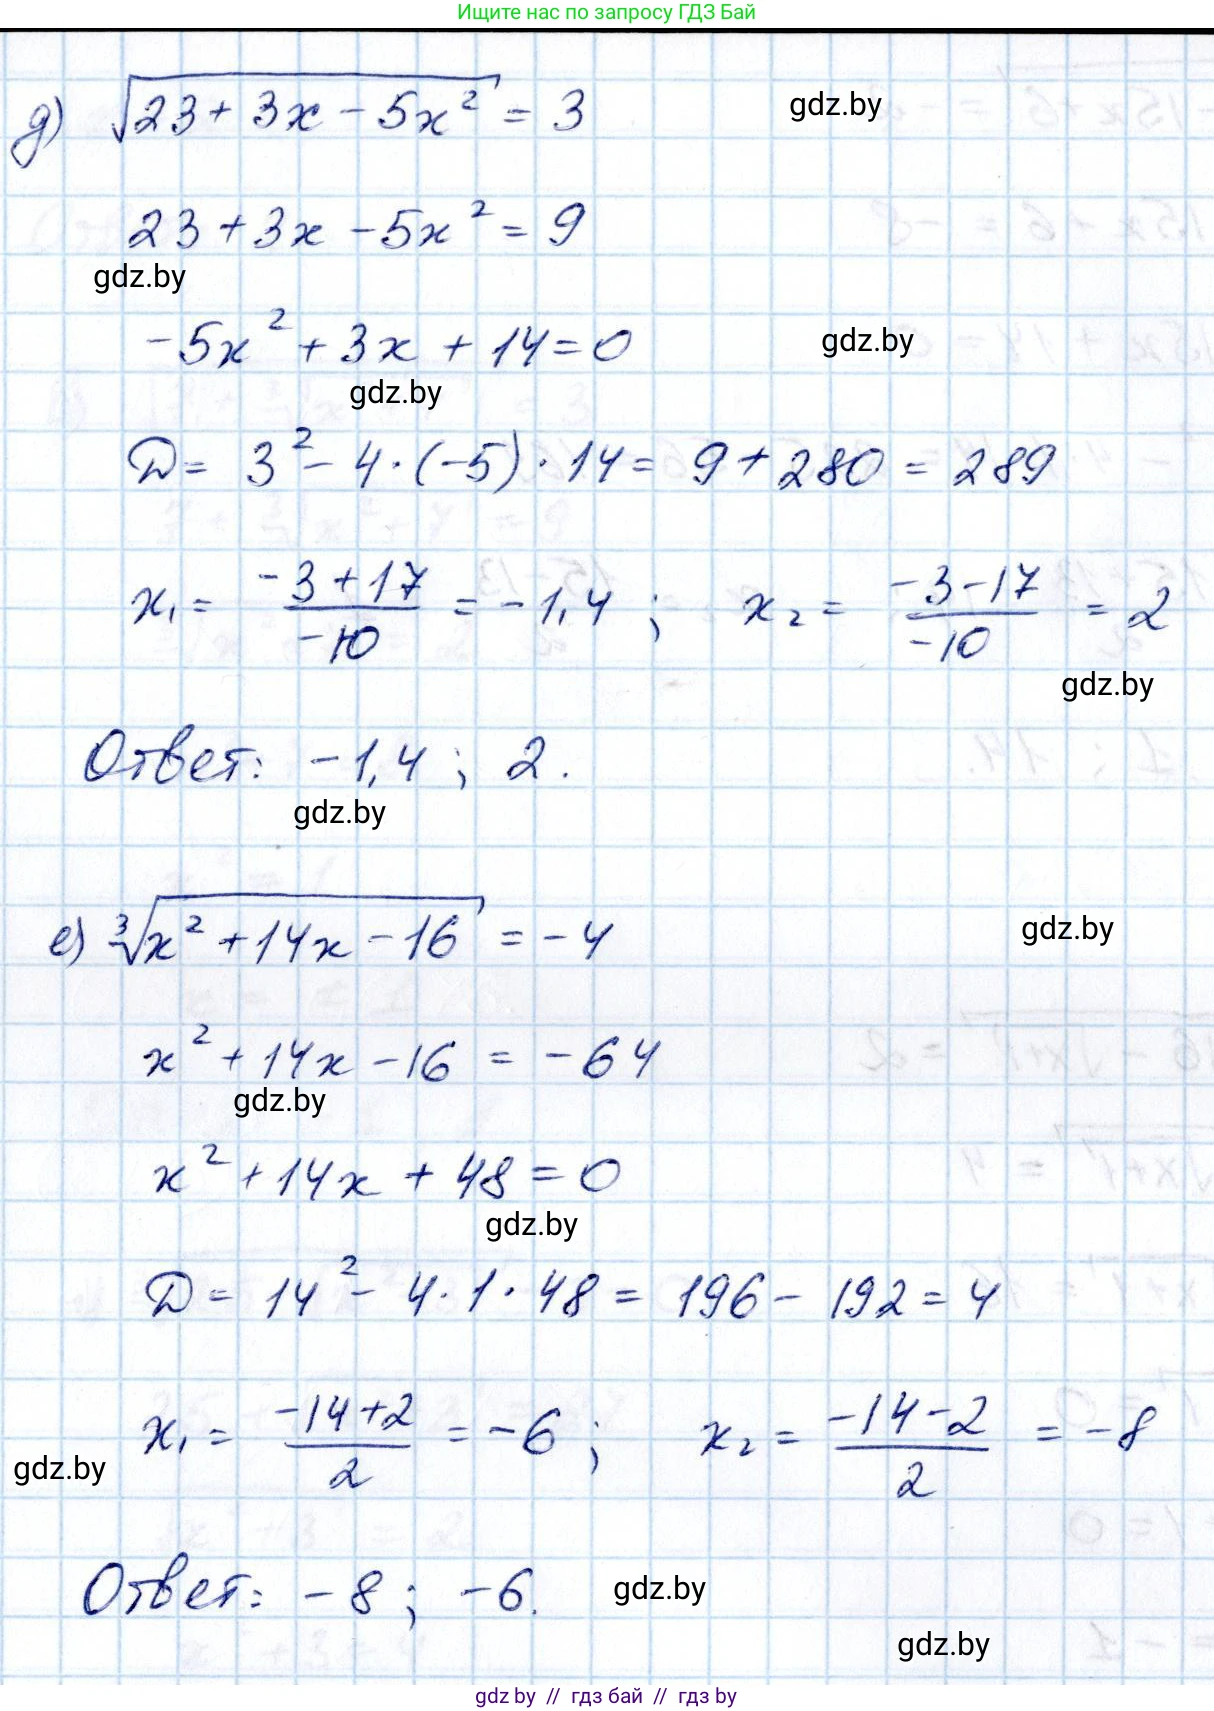 Ищите нас по запросу ГДЗ Бай
д) √(23 + 3x - 5x²) = 3
gdz.by
23 + 3x - 5x² = 9
gdz.by
-5x² + 3x + 14 = 0
gdz.by
gdz.by
D = 3² - 4 · (-5) · 14 = 9 + 280 = 289
x₁ = (-3 + 17)/(-10) = -1,4 ; x₂ = (-3 - 17)/(-10) = 2
gdz.by
Ответ: -1,4 ; 2.
gdz.by
е) ∛(x² + 14x - 16) = -4
gdz.by
x² + 14x - 16 = -64
gdz.by
x² + 14x + 48 = 0
gdz.by
D = 14² - 4 · 1 · 48 = 196 - 192 = 4
x₁ = (-14 + 2)/2 = -6 ; x₂ = (-14 - 2)/2 = -8
gdz.by
Ответ: -8 ; -6.
gdz.by
gdz.by
gdz by // гдз бай // гдз by